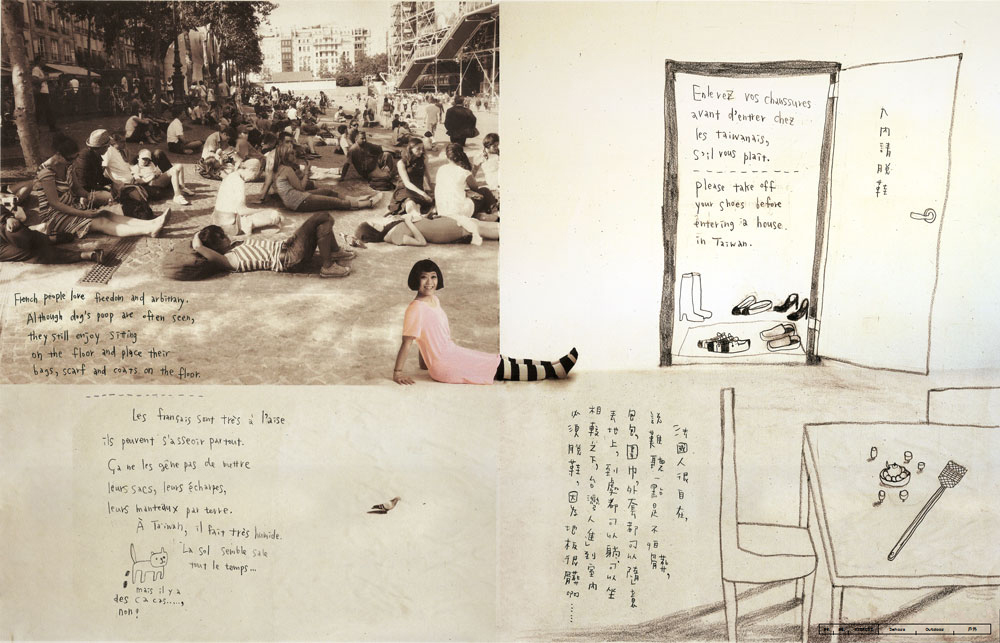 Enlevez vos chaussures
avant d'entrer chez
les taiwanais,
s'il vous plaît.
please take off
your shoes before
entering a house
in Taiwan.
入內請脫鞋
French people love freedom and arbitrary.
Although dog's poop are often seen,
they still enjoy siting
on the floor and place their
bags, scarf and coats on the floor.
Les français sont très à l'aise
ils peuvent s'asseoir partout.
Ça ne les gêne pas de mettre
leurs sacs, leurs écharpes,
leurs manteaux par terre.
À Taiwan, il fait très humide.
La sol semble sale
tout le temps...
mais il y a
des cacas.....,
non!
法國人很自在,
說難聽一點是不怕髒,
包包,圍巾,外套都可以隨意
丟地上,到處都可以躺可以坐
相較之下,台灣人進到室內
必須脫鞋,因為地板很髒啊......
Outdoor
戶外